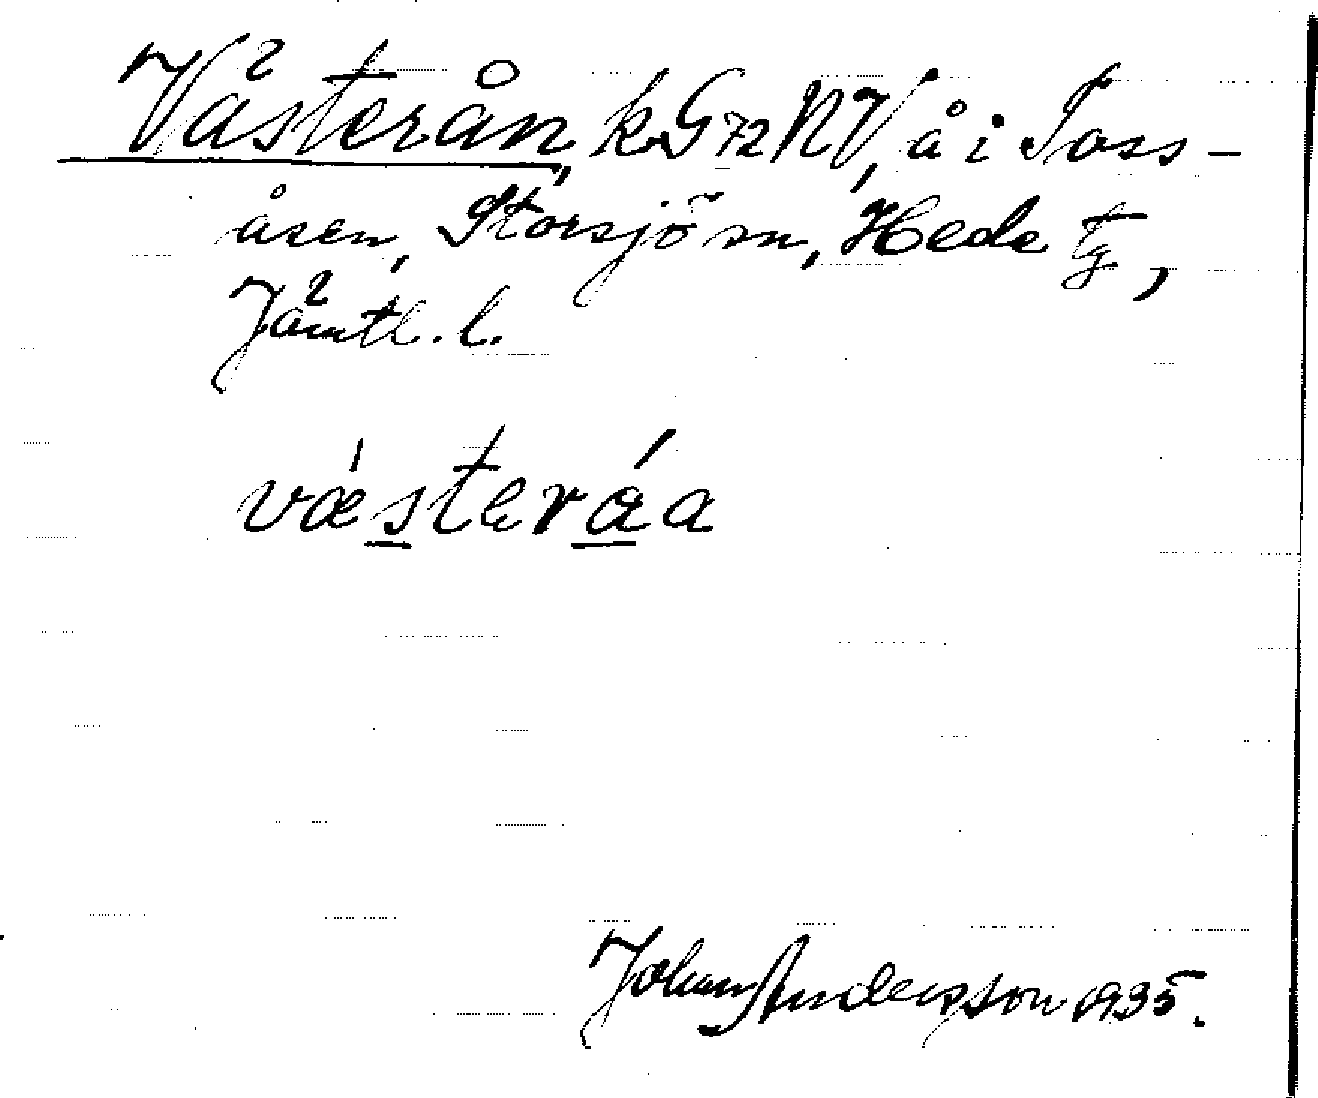 Västerån, k.G 72 NV, å i Toss-
åsen, Storsjö sn, Hede tg,
Jämtl. l.
væ´steráa
Johan Andersson 1935.